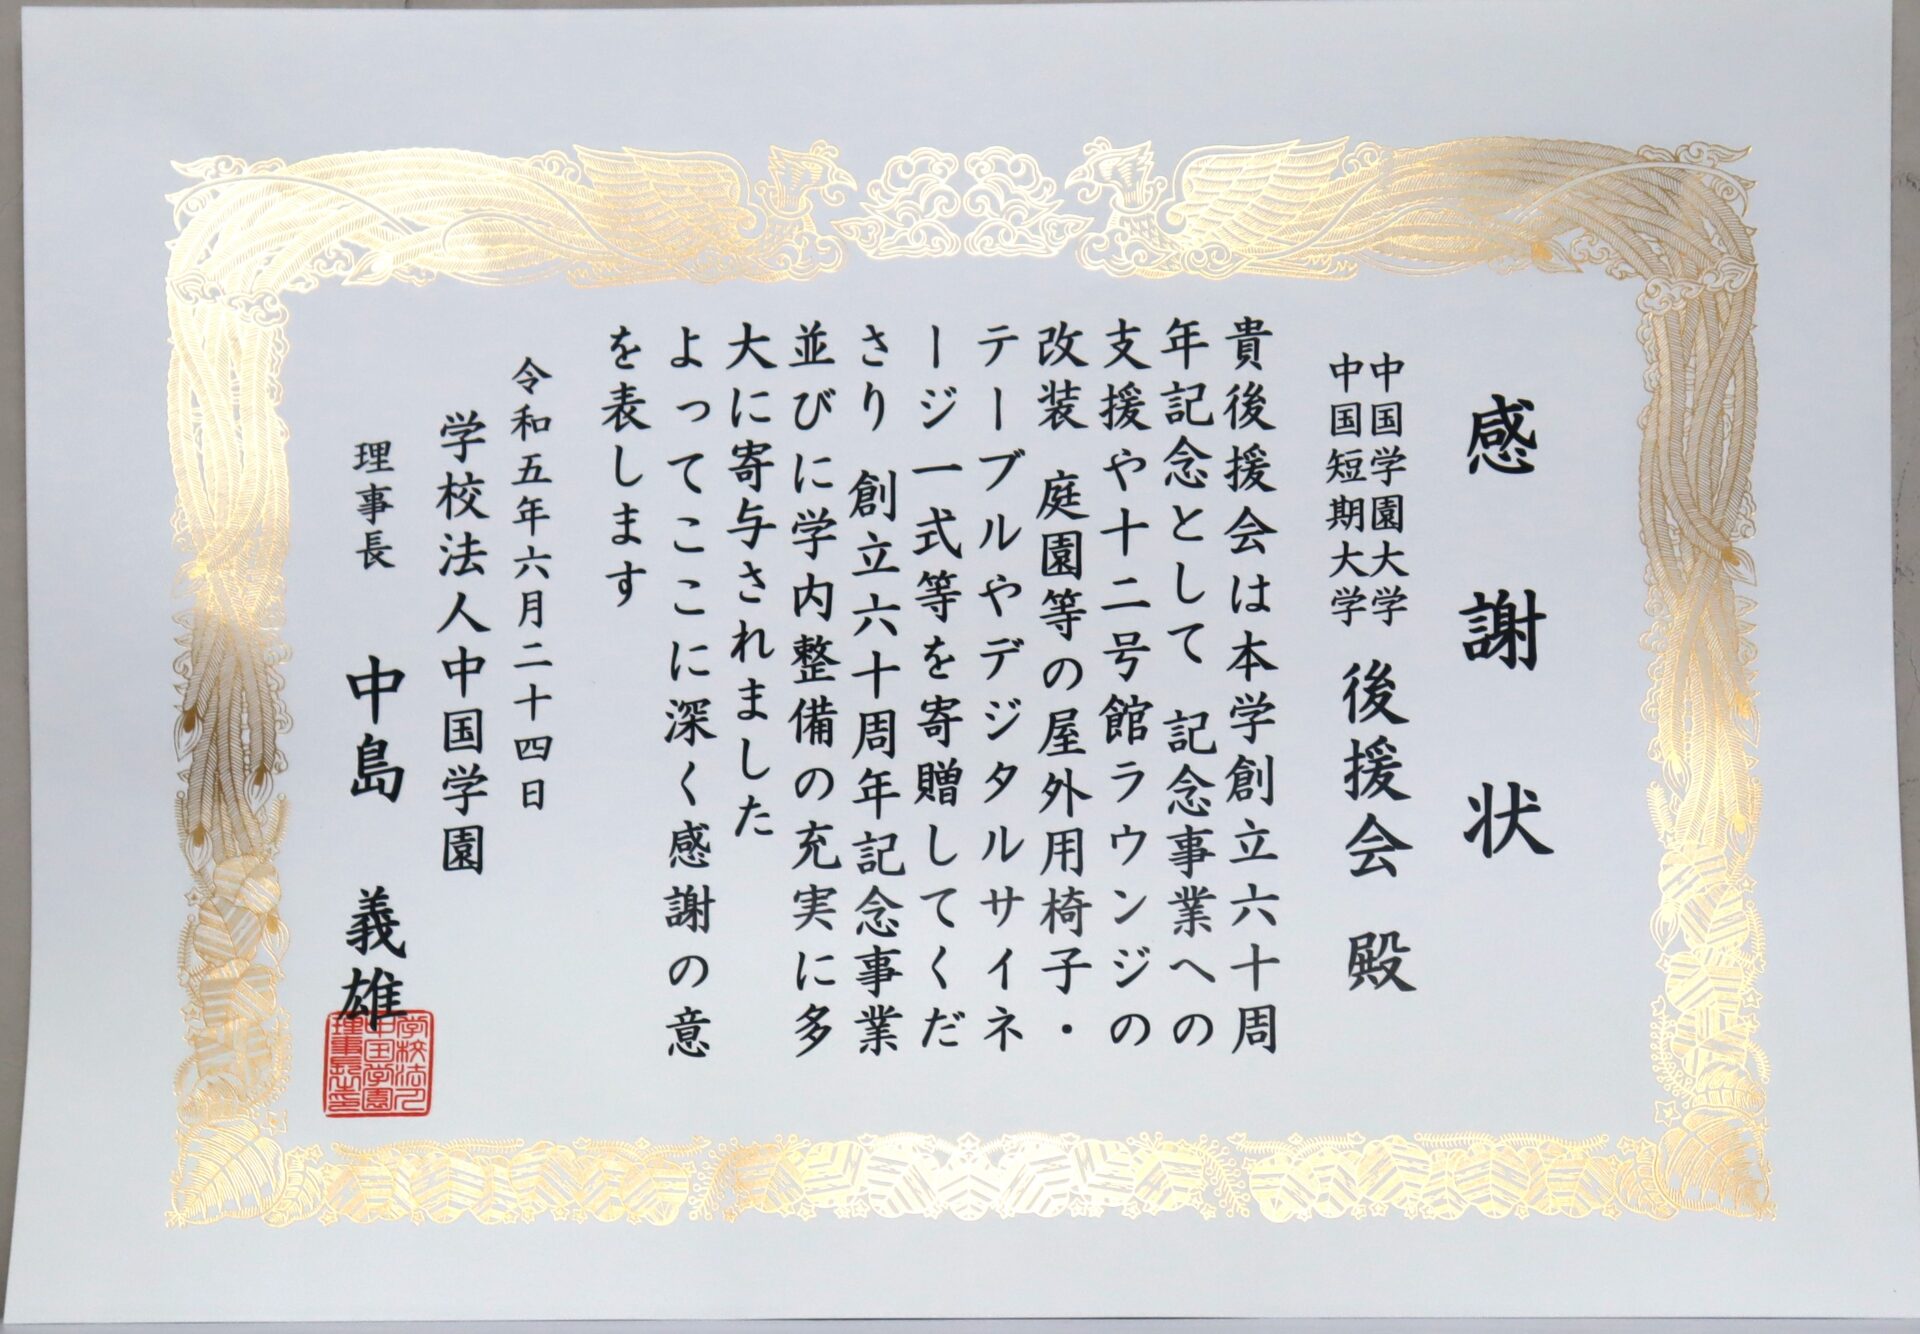 感謝状
中国学園大学
中国短期大学
後援会 殿
貴後援会は本学創立六十周
年記念として 記念事業への
支援や十二号館ラウンジの
改装 庭園等の屋外用椅子・
テーブルやデジタルサイネ
ージ一式等を寄贈してくだ
さり 創立六十周年記念事業
並びに学内整備の充実に多
大に寄与されました
よってここに深く感謝の意
を表します
令和五年六月二十四日
学校法人中国学園
理事長 中島 義雄
学校法人
中国学園
理事長之印